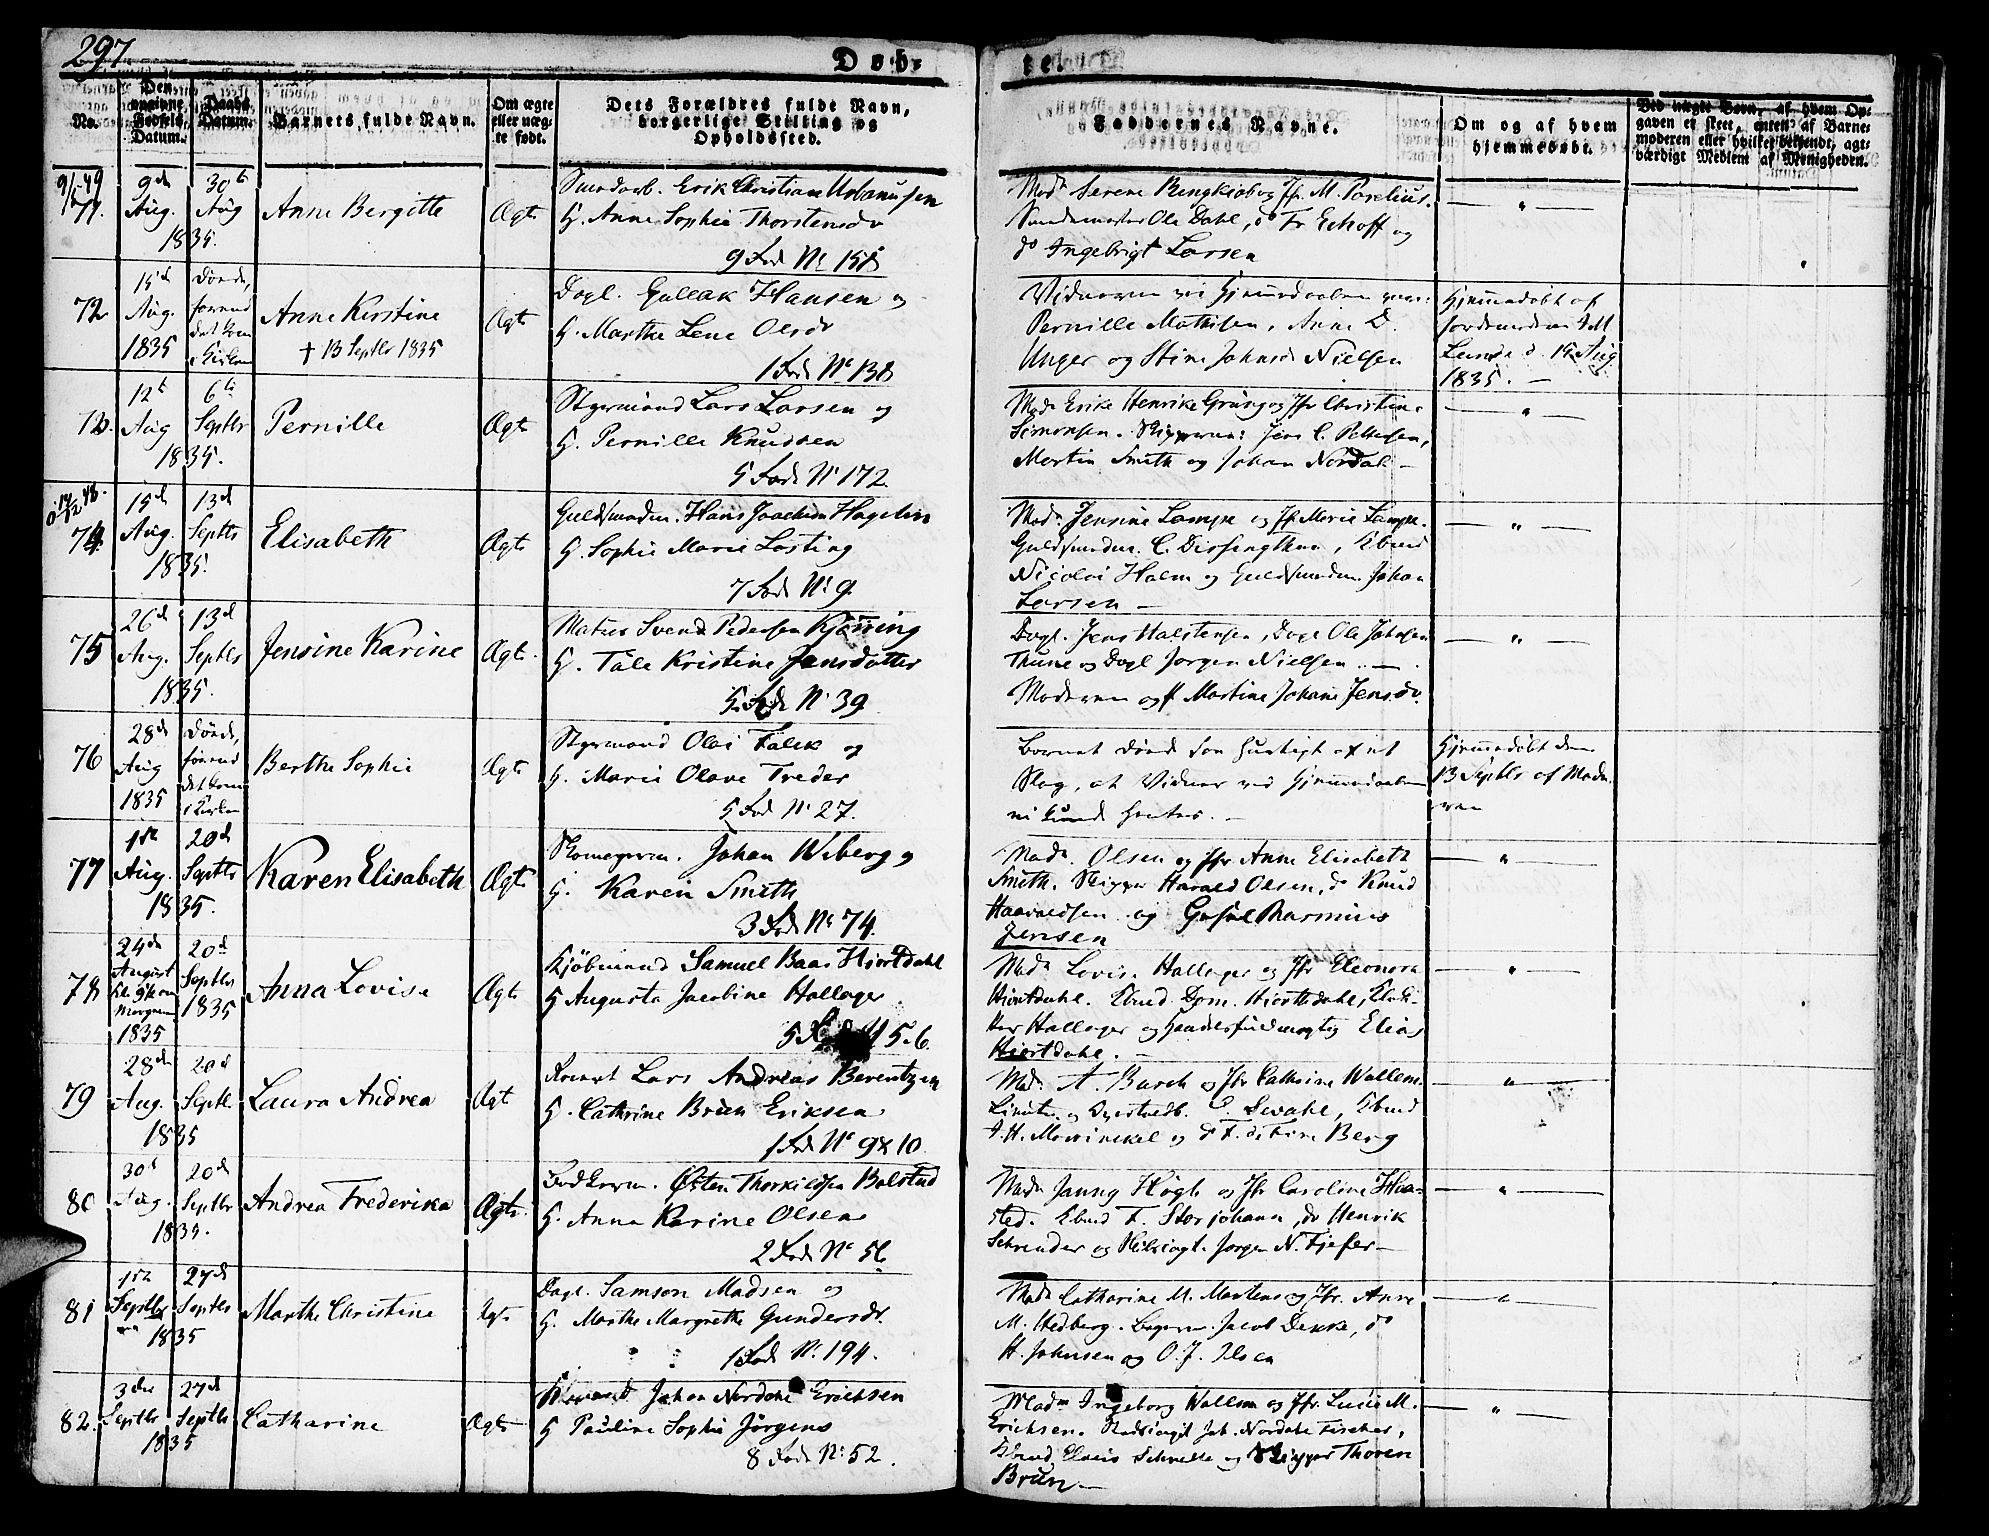 297
Døb-
te.
No.
Den opgivne Fødsels Datum.
Daabs Datum.
Barnets fulde Navn.
Om ægte eller uægte født.
Dets Forældres fulde Navn, borgerlige Stilling og Opholdssted.
Faddernes Navne.
Om og af hvem hjemmedøbt.
Ved uægte Børn, af hvem Opgaven er skeet, enten af Barnemoderen eller hvilket bekjendt, agtværdigt Medlem af Menigheden.
9de Aug. 1835.
30te Aug
Anne Bergitte
Ægte
Erik Christian Urbanussen
H. Anne Sophie Thorstensdr
9 Fod No 158
Madm Serene Ringkiøb og Jfr. M. Paselius.
Ole Dahl, do Fr Eckhoff og
do Ingebrigt Larsen
72
15de Aug. 1835
Døde, førend det kom i Kirken
Anne Kirstine
† 13 Septbr 1835
Ægte
Dagl. Gullak Hansen og
H. Marthe Lene Olsdr
1 Fod No 138
Vidnerne ved Hjemmedaaben vare:
Pernille Mathisen, Anne D.
Unger og Stine Johnsd Nielsen
Hjemmedøbt af
Jordemoderen
Lunde d. 15 Aug
1835. —
73.
12te Aug 1835.
6te Septbr
Pernille
Ægte
Styrmand Lars Larsen og
H. Pernille Knudsen
5 Fod No 172
Madm Erike Henrike Grung og Jfr Christine
Simonsen. Skipperne: Jens C. Pettersen,
Martin Smith og Johan Nordal —
74.
15de Aug. 1835.
13de Septbr
Elisabeth
Ægte
Guldsmedm. Hans Joachim Hagelin
H. Sophie Marie Lasting
7 Fod No 9
Madm Jensine Lampe og Jfr Marie Lampe.
Guldsmedm. C. Dissingthun, Kbmd
Nicolai Holm og Guldsmedm. Johan
Larsen —
75
26de Aug. 1835.
13de Septbr
Jensine Karine
Ægte
Matros Svend Pedersen Kjørring
H. Tale Kristine Jensdatter
5 Fod No 39
Dagl. Jens Halstensen, Dagl Ole Johnsen
Thune og Dagl Jørgen Nielsen. —
Moderen og P. Martine Johane Jensdr.
76
28de Aug 1835
Døde, førend det kom i Kirken
Berthe Sophie
Ægte
Styrmand Olai Falck og
H. Marie Olave Treder
5 Fod No 27.
Barnet døde saa hurtigt af et
Slag, at Vidner ved Hjemmedaaben
ei kunde hentes. —
Hjemmedøbt den
13 Septbr af Mode-
ren
77
1ste Aug. 1835.
20de Septbr
Karen Elisabeth
Ægte
Skomagerm. Johan Wiberg og
H. Karen Smith
3 Fod No 74.
Madm. Olsen og Jfr Anne Elisabeth
Smith. Skipper Harald Olsen, do Knud
Haavaldsen og Rasmus
Jensen
78
24de August Morgenen 1835
20de Septbr 1835
Anna Lovise
Ægte
Kjøbmand Samuel Baas Hiortdahl
H Augusta Jacobine Hallager
5 56.
Madm Lovise Hallager og Jfr Eleonora
Hiortdahl. Kbmd Dom. Hiortdahl,
Hallager og Handelsfuldmægtig Elias
Hiortdahl. —
79
28de Aug. 1835
20de Septbr
Laura Andrea
Ægt
Lars Andreas Berentzen
H. Cathrine Brun Eriksen
1 Fod No 9 & 10.
Madm. A. Barch og Jfr Cathrine Wallem.
80
30te Aug. 1835.
20de Septbr
Andrea Frederikke
Ægte
Østen Thorkildsen Bolstad
H. Anna Karine Olsen
2 Fod No 56
Madm Janny Høgh og Jfr Caroline Haa-
sted. Kbmd F. Storjohann, do Henrik
Schrøder og Jørgen N. Fjefer —
81
1ste Septbr 1835
27de Septbr
Marthe Christine
Ægte
Dagl. Samson Madsen og
H. Marthe Margrethe Gundersdr.
1 Fod No. 194.
Madm Catharine M. Martens og Jfr. Anne
M. Hedberg. Bagerm. Jacob Dekke, do
H. Johnsen og O. J. Ilsen
82.
3die Septbr 1835
27de Septbr
Catharine
Ægte
Johan Nordahl Erichsen
H Pauline Sophie Jørgens
8 Fod No. 52.
Madm Ingeborg Wallem og Jfr. Lucie M.
Erichsen. Joh. Nordahl Fischer,
og Skipper Thoren
Brun —